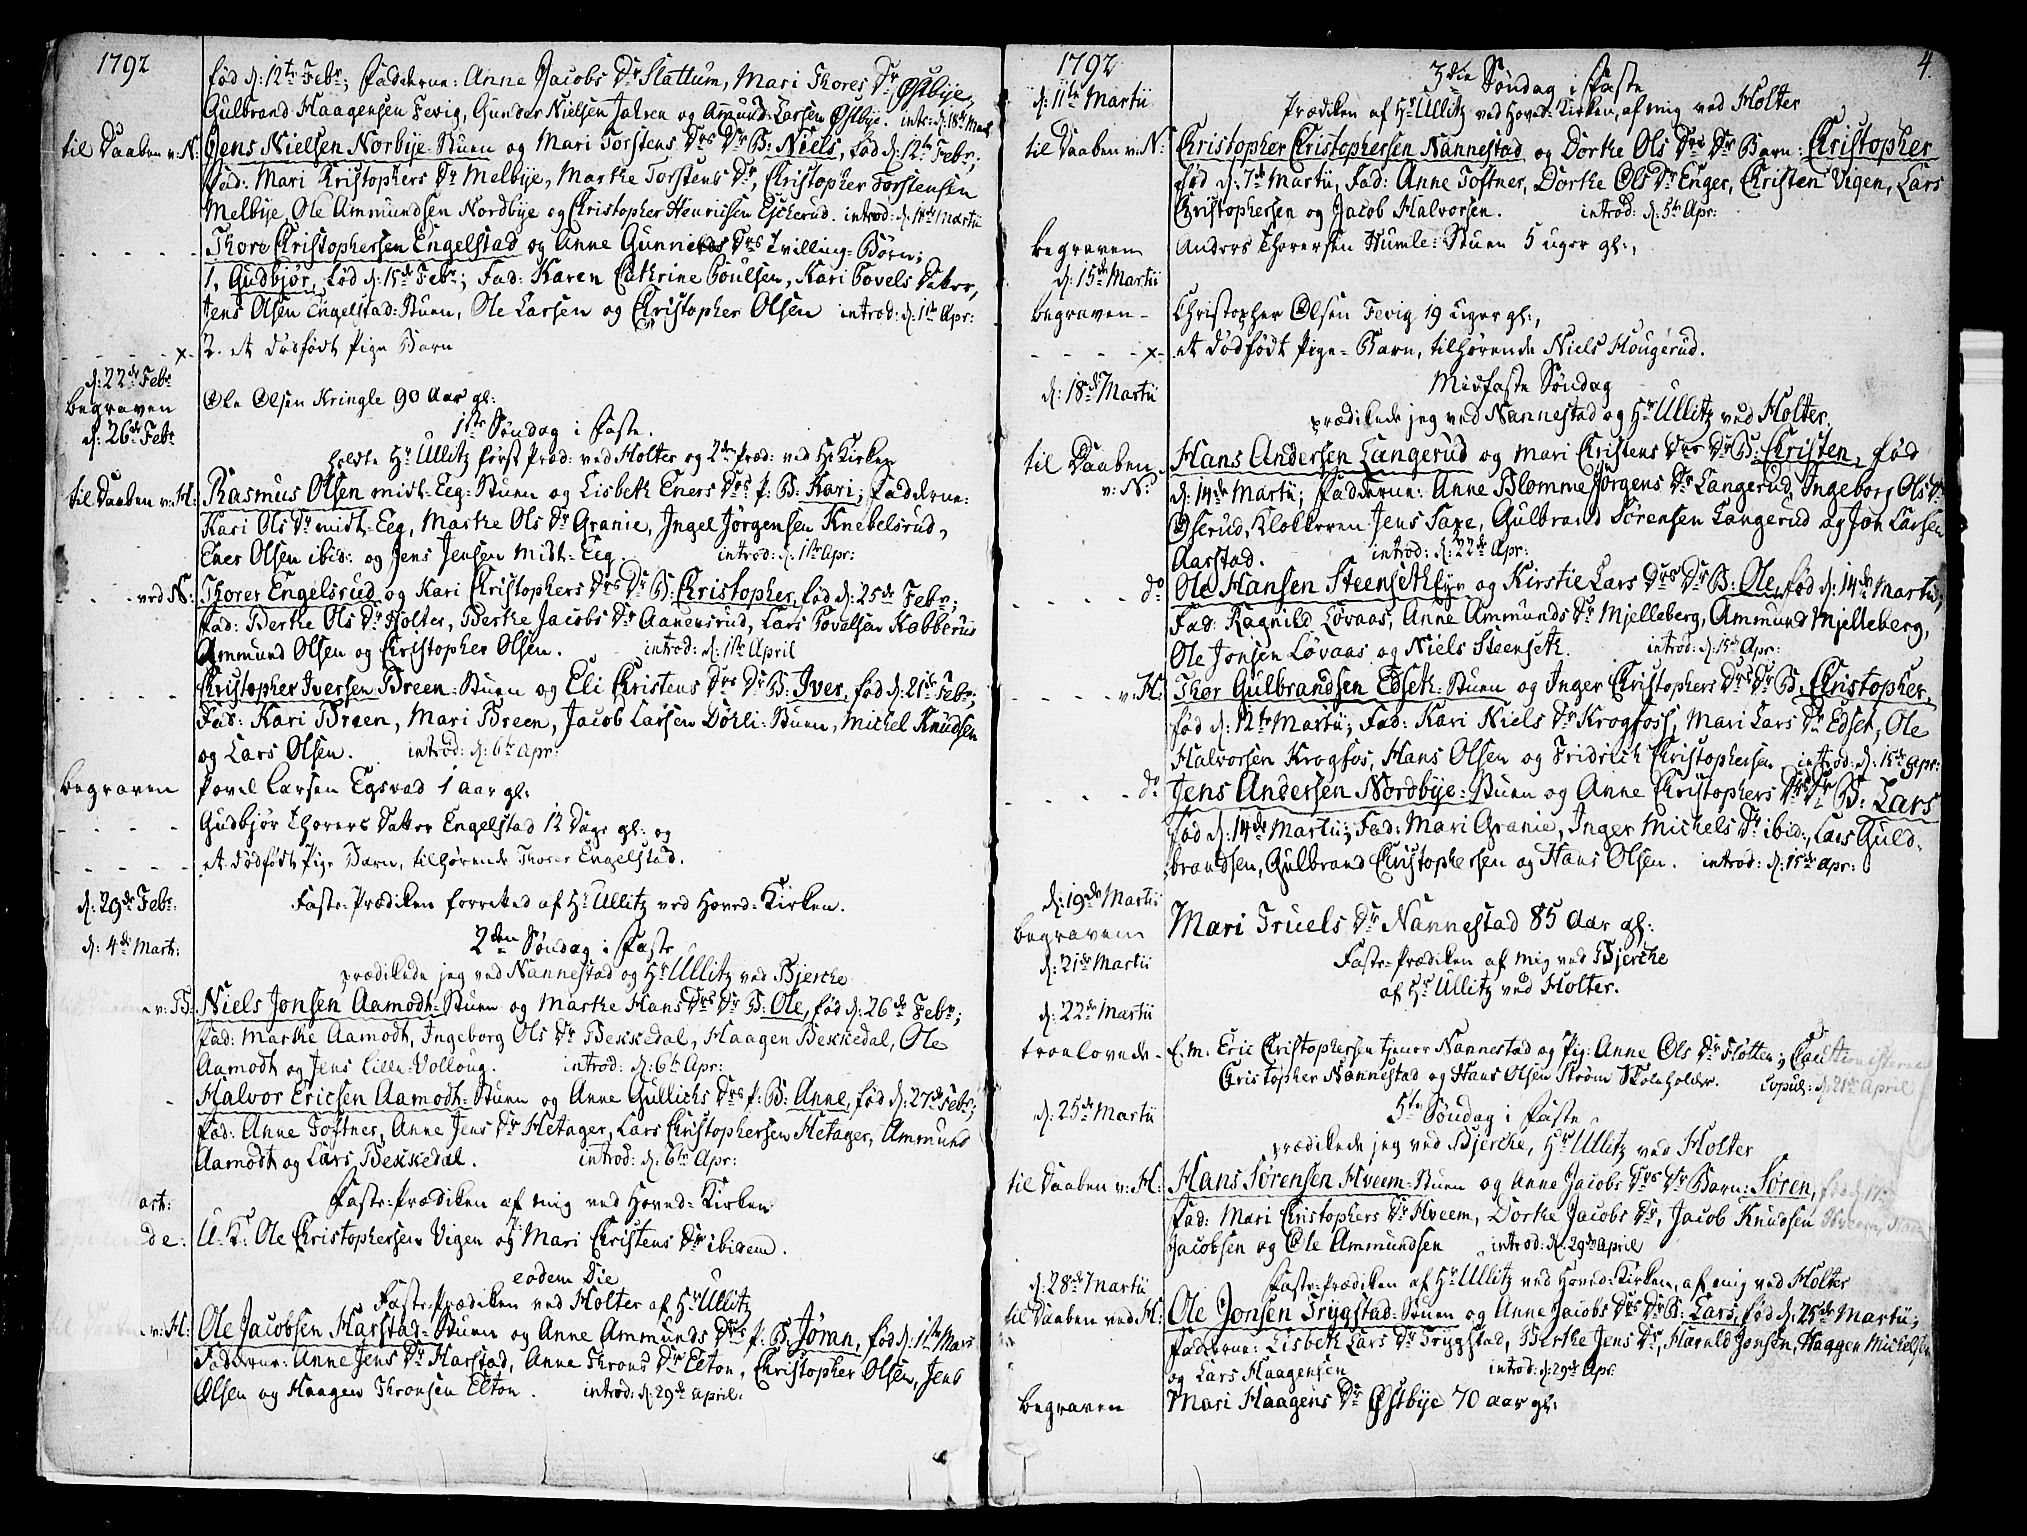 1792
fød d: 12te Febr; Fadderne: Anne Jacobs Dr Slattum, Mari Thores Dr Østbye,
Gulbrand Haagensen Fevig, Gunder Nielsen Jahren og Amund Larsen Østbye. intr: d: 18de Mart
til Daaben v: N: Jens Nielsen Norbye-Stuen og Mari Torstens Drs Dr B: Niels, fød d: 12te Febr;
Fad: Mari Christophers Dr Melbye, Marthe Torstens Dr, Christopher Torstensen
Melbye, Ole Ammundsen Nordbye og Christopher Henrichsen Escherud. introd: d: 18de Martii
- - - - - Thore Christophersen Engelstad og Anne Gunnilds Drs Tvilling-Børn;
1. Gudbjør, fød d: 15de Febr; Fad: Karen Cathrine Poulsen, Kari Povels Datter,
Jens Olsen Engelstad-Stuen, Ole Larsen og Christopher Olsen introd: d: 1ste Apr:
- - - - x- 2. et dødfødt Pige Barn
d: 22de Febr
begraven Ole Olsen Kringle 90 Aar gl:
d: 26de Febr 1ste Søndag i Faste.
holdte Hr Ullitz først Præd: ved Holter og 2den Præd: ved H: Kirken
til Daaben v: H: Rasmus Olsen midt-Eeg-Stuen og Lisbeth Eners Drs p: B: Kari; Fadderne:
Kari Ols Dr midt-Eeg, Marthe Ols Dr Granie, Ingel Jørgensen Knebelsrud,
Ener Olsen ibid: og Jens Jensen Midt-Eeg. introd: d: 1ste Apr:
- - ved N: Thorer Engelsrud og Kari Christophers Drs Dr B: Christopher, fød d: 25de Febr;
Fad: Berthe Ols Dr Holter, Berthe Jacobs Dr Aanensrud, Lars Povelsen Kobberud
Ammund Olsen og Christopher Olsen. introd: d: 1ste April
- - - - Christopher Iversen Breen-Stuen og Eli Christens Drs Dr B: Iver, fød d: 21de Febr;
Fad: Kari Breen, Mari Breen, Jacob Larsen Døhli-Stuen, Michel Knudsen
og Lars Olsen. introd: d: 6te Apr:
begraven Povel Larsen Egsvad 1 aar gl:
- - - - Gudbjør Thorers Datter Engelstad 12 Dage gl: og
- - - - et dødfødt Pige Barn, tilhørende Thorer Engelstad.
d: 29de Febr: Faste-Prædiken forrettet af Hr Ullitz ved Hoved-Kirken.
d: 4de Mart: 2den Søndag i Faste
prædikede jeg ved Nannestad og Hr Ullitz ved Bjerche
v: B: Niels Jonsen Aamodt-Stuen og Marthe Hans Drs Dr B: Ole, fød d: 26de Febr;
Fad: Marthe Aamodt, Ingeborg Ols Dr Bekkedal, Haagen Bekkedal, Ole
Aamodt og Jens Lille-Vollaug. introd: d: 6te Apr:
- Halvor Ericsen Aamodt-Stuen og Anne Gullichs Drs p: B: Anne, fød d: 27de Febr;
Fad: Anne Tostner, Anne Jens Dr Hetager, Lars Christophersen Hetager, Ammund
Aamodt og Lars Bekkedal. introd: d: 6te Apr:
art: Faste-Prædiken af mig ved Hoved-Kirken
de: U: K: Ole Christophersen Vigen og P: Mari Christens Dr ibidem.
eodem Die
Faste-Prædiken ved Holter af Hr Ullitz
v: H: Ole Jacobsen Harstad-Stuen og Anne Ammunds Drs p: B: Jøran, fød d: 1ste Mart
Fadderne: Anne Jens Dr Harstad, Anne Thrond Dr Elton, Christopher Olsen, Jens
Olsen og Haagen Thronsen Elton. introd: d: 29de April.
1792 4
d: 11te Martii 3die Søndag i Faste
Prædiken af Hr Ullitz ved Hoved-Kirken, af mig ved Holter
til Daaben v: N: Christopher Christophersen Nannestad og Dorthe Ols Drs Dr Barn: Christopher
fød d: 7de Martii, Fad: Anne Tostner, Dorthe Ols Dr Enger, Christen Vigen, Lars
Christophersen og Jacob Halvorsen. introd: d: 5te Apr:
begraven Anders Thorersen Humle-Stuen 5 uger gl:,
d: 15de Martii
begraven - Christopher Olsen Fevig 19 Uger gl:,
- - - - x- et dødfødt Pige-Barn, tilhørende Niels Hougerud.
d: 18de Martii Midfaste Søndag
prædikede jeg ved Nannestad og Hr Ullitz ved Holter
til Daaben v: N: Hans Andersen Langerud og Mari Christens Drs Dr B: Christen, fød
d: 14de Martii; Fadderne: Anne Blomme Jørgens Dr Langerud, Ingeborg Ols Dr
Øserud, Klokkeren Jens Saxe, Gulbrand Sørensen Langerud og Jon Larsen
Aarstad. introd: d: 22de Apr:
- - - - do Ole Hansen Steenseth Eyr og Kirstie Lars Drs Dr B: Ole, fød d: 14de Martii,
Fad: Ragnild Løvaas, Anne Ammunds Dr Mjelleberg, Ammund Mjelleberg,
Ole Jonsen Løvaas og Niels Steenseth. introd: d: 15de Apr:
- - - - v: H: Thor Gulbrandsen Edseth-Stuen og Inger Christophers Drs Dr B: Christopher,
fød d: 12te Martii; Fad: Kari Niels Dr Krogfoss, Mari Lars Dr Edset, Ole
Halvorsen Krogfos, Hans Olsen og Fridrich Christophersen introd: d: 15de Apr:
- - - - do Jens Andersen Nordbye-Stuen og Anne Christophers Drs Dr B: Lars
fød d: 14de Martii; Fad: Mari Granie, Inger Michels Dr ibid:, Lars Guld-
brandsen, Gulbrand Christophersen og Hans Olsen. introd: d: 15de Apr:
d: 19de Martii
begraven Mari Truels Dr Nannestad 85 Aar gl:
d: 21de Martii Faste-Prædiken af mig ved Bjerche
af Hr Ullitz ved Holter.
d: 22de Martii
troelovede - E: m: Eric Christophersen tjener Nannestad og Pig: Anne Ols Dr Flotten; Cautionisterne
Christopher Nannestad og Hans Olsen Strøm Skoleholder. Copul: d: 21de April
d: 25de Martii 5te Søndag i Faste
prædikede jeg ved Bjerche, Hr Ullitz ved Holter
til Daaben v: H: Hans Sørensen Hveem-Stuen og Anne Jacobs Drs Dr Barn: Søren, fød d: 17de
Fad: Mari Christophers Dr Hveem, Dorthe Jacobs Dr, Jacob Knudsen Hveem, Hans
Jacobsen og Ole Ammundsen introd: d: 29de April
d: 28de Martii Faste-Prædiken af Hr Ullitz ved Hoved-Kirken, af mig ved Holter
til Daaben ved H: Ole Jonsen Trygstad-Stuen og Anne Jacobs Drs Dr B: Lars, fød d: 25de Martii;
Fadderne: Lisbeth Lars Dr Trygstad, Berthe Jens Dr, Harald Jonsen, Haagen Michelsen
og Lars Haagensen introd: d: 29de Apr:
begraven Mari Haagens Dr Østbye 70 aar gl: